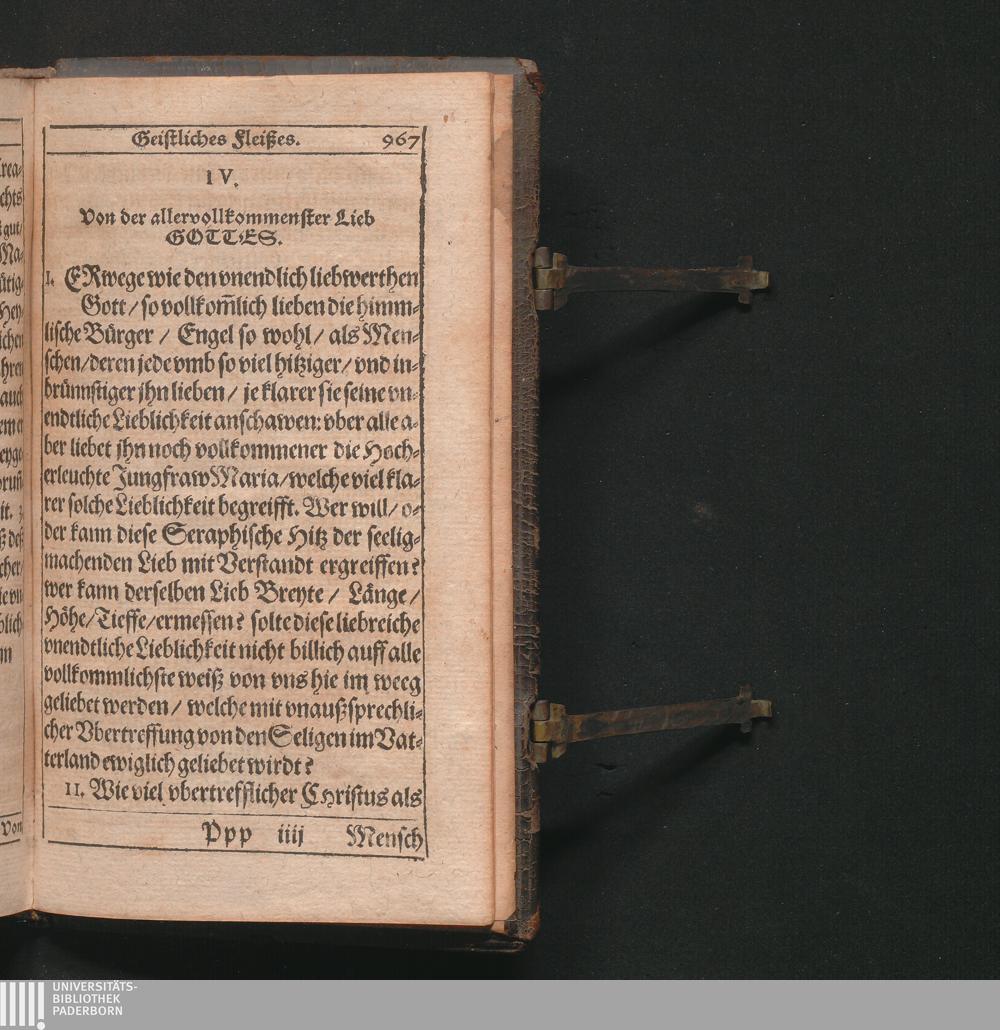 Geistliches Fleißes. 967
IV.
Von der allervollkommenster Lieb
GOTTES.
I. ERwege wie den vnendlich liebwerthen
Gott / so vollkom̃lich lieben die himm⸗
lische Bürger / Engel so wohl / als Men⸗
schen / deren jede vmb so viel hitziger / vnd in⸗
brünnstiger jhn lieben / je klarer sie seine vn⸗
endtliche Lieblichkeit anschawen: vber alle a⸗
ber liebet jhn noch vollkommener die Hoch⸗
erleuchte Jungfraw Maria / welche viel kla⸗
rer solche Lieblichkeit begreifft. Wer will / o⸗
der kann diese Seraphische Hitz der seelig⸗
machenden Lieb mit Verstandt ergreiffen?
wer kann derselben Lieb Breyte / Länge /
Höhe / Tieffe / ermessen? solte diese liebreiche
vnendtliche Lieblichkeit nicht billich auff alle
vollkommlichste weiß von vns hie im weeg
geliebet werden / welche mit vnaußsprechli⸗
cher Vbertreffung von den Seligen im Vat⸗
terland ewiglich geliebet wirdt?
II. Wie viel vbertrefflicher Christus als
Ppp iiij Mensch
rea⸗
chts
gut /
Ma⸗
ütig⸗
Hey⸗
ichen
hren
auch
it. 3
cher /
Von
UNIVERSITÄTS-
BIBLIOTHEK
PADERBORN